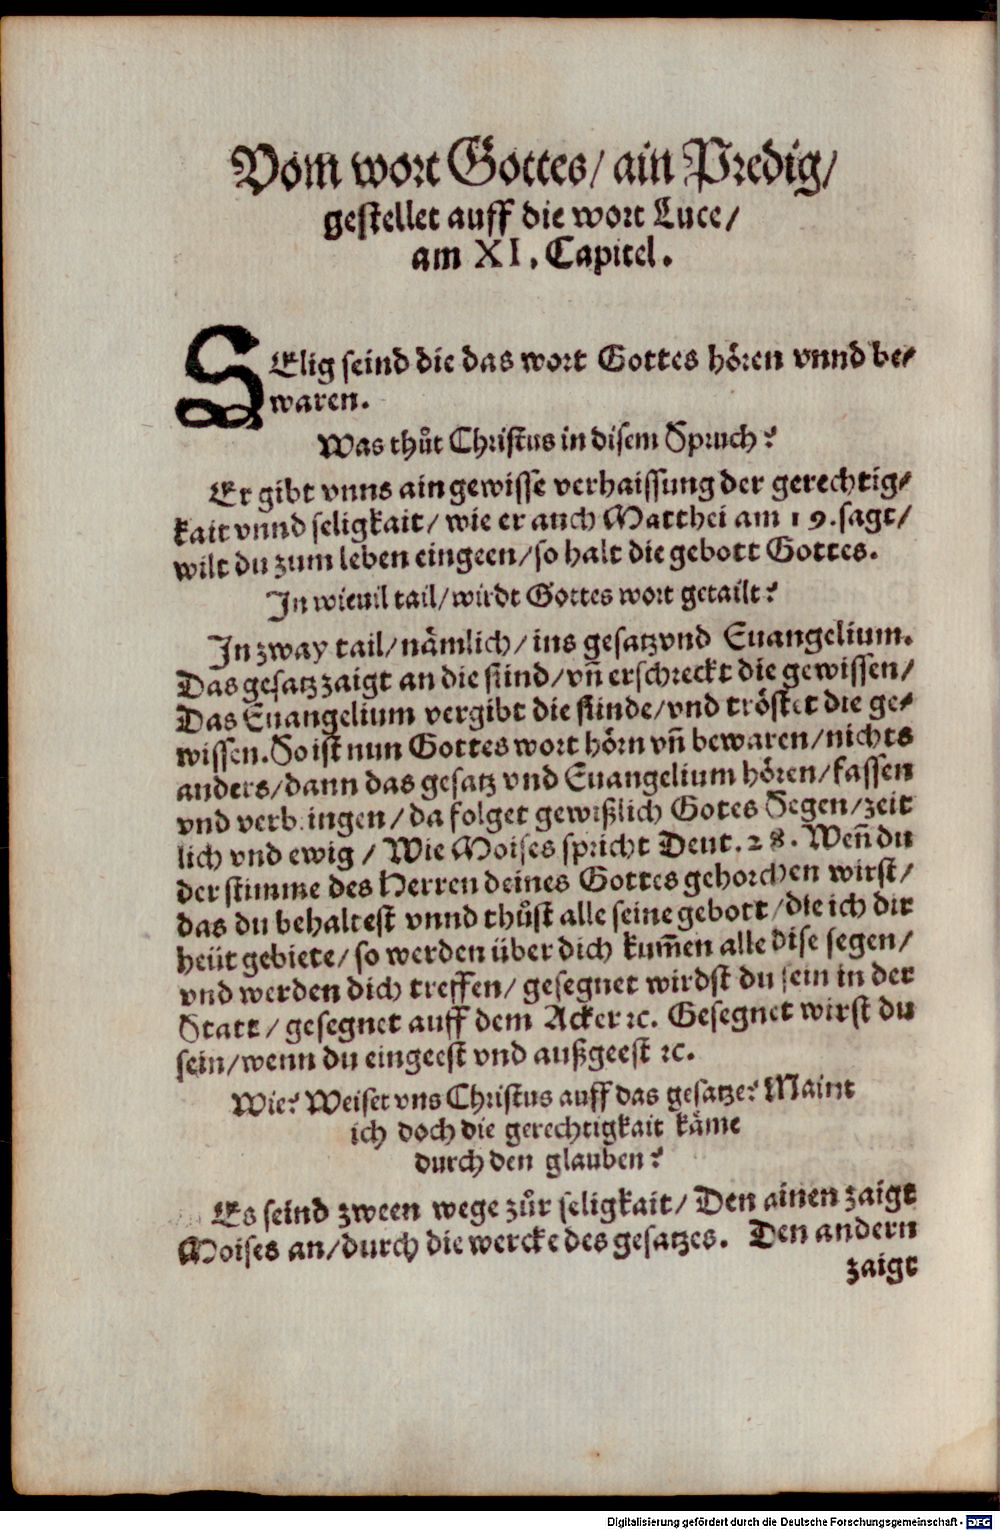 Vom wort Gottes/ ain Predig/
gestellet auff die wort Luce/
am XI. Capitel.
SElig seind die das wort Gottes hören vnnd be⸗
waren.
Was thůt Christus in disem Spruch?
Er gibt vnns ain gewisse verhaissung der gerechtig⸗
kait vnnd seligkait/ wie er auch Matthei am 19. sagt/
wilt du zum leben eingeen/ so halt die gebott Gottes.
In wieuil tail/ wirdt Gottes wort getailt?
In zway tail/ nämlich/ ins gesatz vnd Euangelium.
Das gesatz zaigt an die sünd/ vn̄ erschreckt die gewissen/
Das Euangelium vergibt die sünde/ vnd tröstet die ge⸗
wissen. So ist nun Gottes wort hörn vn̄ bewaren/ nichts
anders/ dann das gesatz vnd Euangelium hören/ fassen
vnd verbringen/ da folget gewißlich Gotes Segen/ zeit
lich vnd ewig / Wie Moises spricht Deut. 28. Wen̄ du
der stimme des Herren deines Gottes gehorchen wirst/
das du behaltest vnnd thůst alle seine gebott/ die ich dir
heüt gebiete/ so werden über dich kum̄en alle dise segen/
vnd werden dich treffen/ gesegnet wirdst du sein in der
Statt/ gesegnet auff dem Acker ꝛc. Gesegnet wirst du
sein/ wenn du eingeest vnd außgeest ꝛc.
Wie? Weiset vns Christus auff das gesatze? Maint
ich doch die gerechtigkait käme
durch den glauben?
Es seind zween wege zůr seligkait/ Den ainen zaigt
Moises an/ durch die wercke des gesatzes. Den andern
zaigt
Digitalisierung gefördert durch die Deutsche Forschungsgemeinschaft - DFG